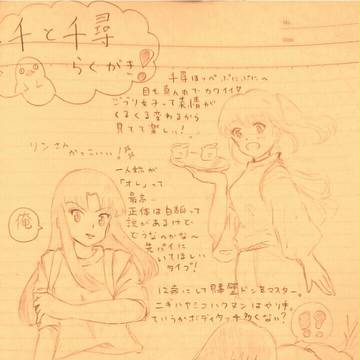 千と千尋
らくがき!
千尋ほっぺぷにぷに〜
目も真ん中でカワイイ!
ジブリ女子って表情が
くるくる変わるから
見てて楽しい!
リンさん
かっこいい!!
一人称が
「オレ」って
最高…
正体は白狐って
説があるけど
どうなのかな〜
先パイに
いてほしい
タイプ!
俺
12歳にして壁ドンをマスター。
ニギハヤミコハクヌシはやり手。
ていうかボディタッチ多くない?
!!?